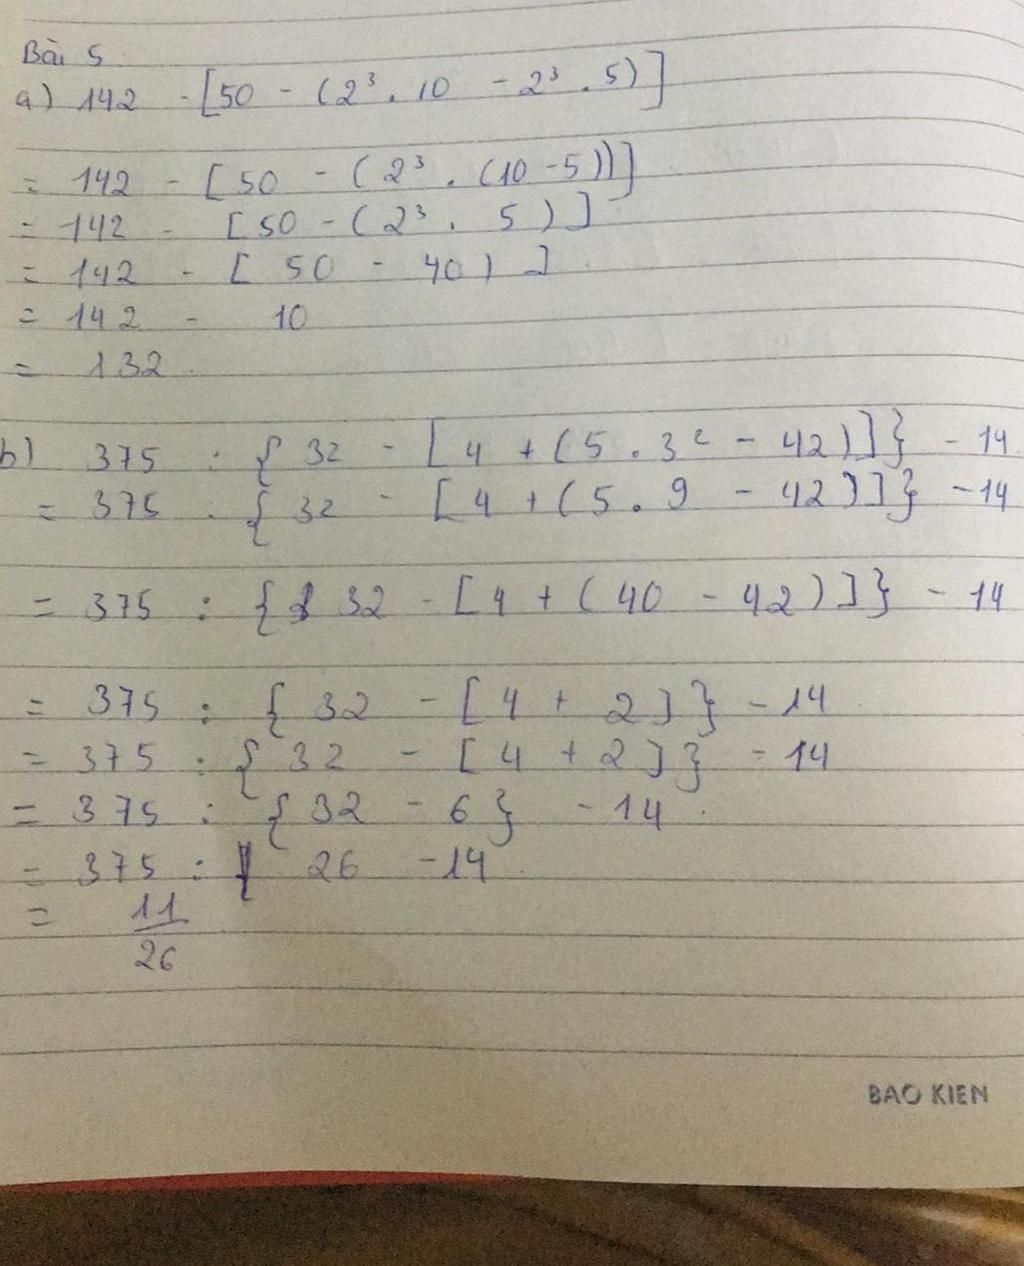 Bài 5
a) 142 - [50 - (2³ . 10 - 2³ . 5)]
= 142 - [50 - (2³ . (10 - 5))]
= 142 - [50 - (2³ . 5)]
= 142 - [50 - 40)]
= 142 - 10
= 132
b) 375 : {32 - [4 + (5 . 3² - 42)]} - 14
= 375 : {32 - [4 + (5 . 9 - 42)]} - 14
= 375 : {32 - [4 + (40 - 42)]} - 14
= 375 : {32 - [4 + 2]} - 14
= 375 : {32 - [4 + 2]} - 14
= 375 : {32 - 6} - 14
= 375 : 26 - 14
= 11
26
BAO KIEN